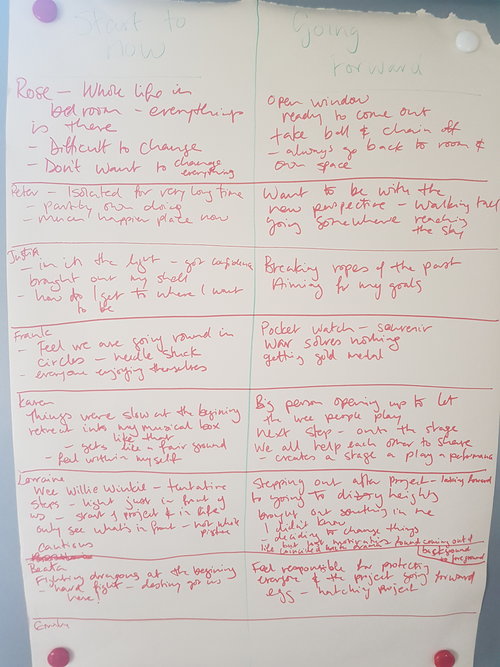 Start to
now
Going
Forward
Rose – Whole life in
bedroom – everythings
is there
- Difficult to change
- Don't want to change
everything
Open window
ready to come out
take ball & chain off
- always go back to room &
own space
Peter – Isolated for very long time
- partly own doing
- much happier place now
Want to be with the
new perspective – walking tall
going somewhere reaching
the sky
Justin
- im in the light – got confidence
brought out my shell
- how do I get to where I want
to be
Breaking ropes of the past
Aiming for my goals
Frank
- Feel we are going round in
circles – needle stuck
- everyone enjoying themselves
Pocket watch – souvenir
War solves nothing
getting gold medal
Karen
Things were slow at the begining
retreat into my musical box
like that
- gets like a fair ground
- feel within myself
Big person opening up to let
the wee people play
Next step – onto the stage
We all help each other to share
- creates a stage a play a performance
Lorraine
Wee Willie Winkie – tentative
steps – light just in front of
us – start of project & in life
only see what's in front – not whole
picture
Cautious
Stepping out after project – looking forward
to going to dizzy heights
brought out something in me
I didn't know
- deciding to change things
life but
coming out of
background
to foreground
Beata
Fighting dragons at the begining
- hard fight – destiny got us
here!
Feel responsible for protecting
everyone & the project going forward
egg – hatching project